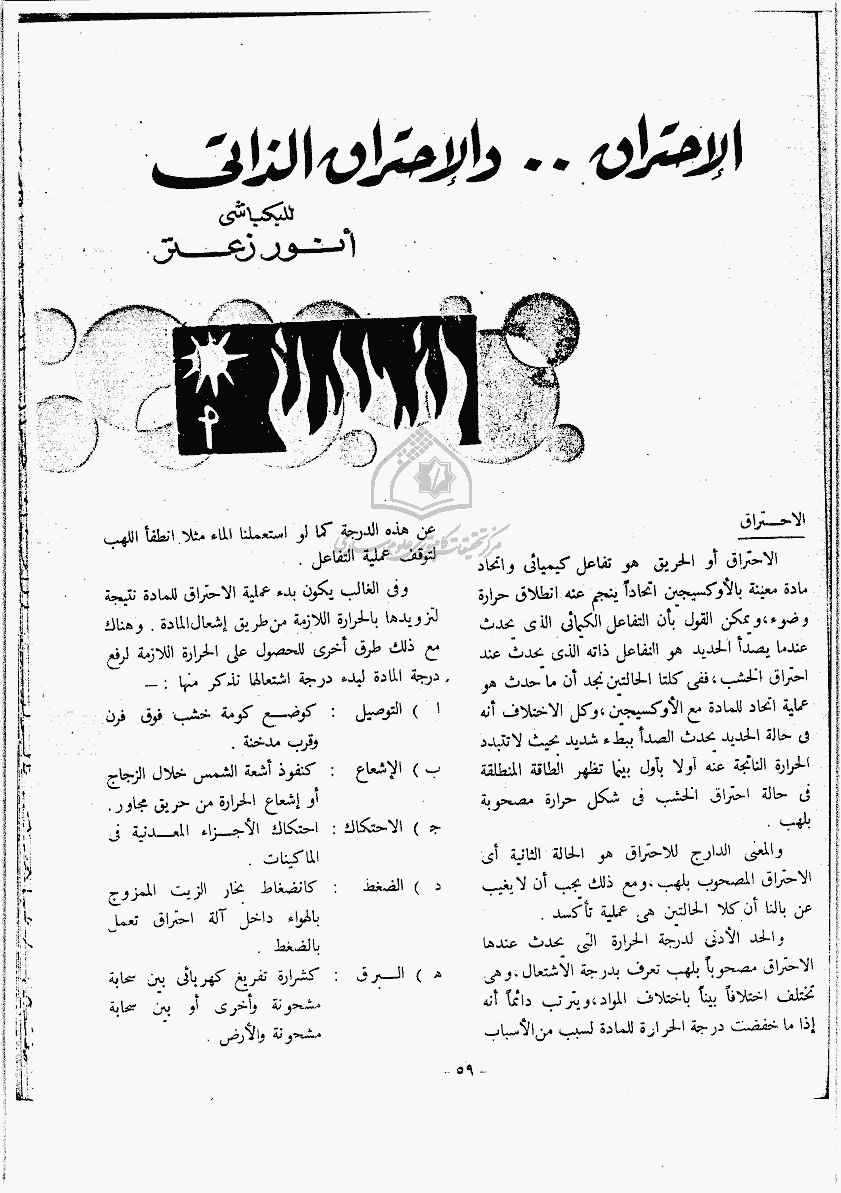 الاحتراق .. والاحتراق الذاتى
للبكباشى
أنور زعتر
الاحتراق
الاحتراق أو الحريق هو تفاعل كيميائى واتحاد
مادة معينة بالأوكسيجين اتحاداً ينجم عنه انطلاق حرارة
وضوء، ويمكن القول بأن التفاعل الكيمائى الذى يحدث
عندما يصدأ الحديد هو التفاعل ذاته الذى يحدث عند
احتراق الخشب، ففى كلتا الحالتين نجد أن ما حدث هو
عملية اتحاد للمادة مع الأوكسيجين، وكل الاختلاف أنه
فى حالة الحديد يحدث الصدأ ببطء شديد بحيث لا تتبدد
الحرارة الناتجة عنه أولا بأول بينما تظهر الطاقة المنطلقة
فى حالة احتراق الخشب فى شكل حرارة مصحوبة
بلهب .
والمعنى الدارج للاحتراق هو الحالة الثانية أى
الاحتراق المصحوب بلهب، ومع ذلك يجب أن لا يغيب
عن بالنا أن كلا الحالتين هى عملية تأكسد .
والحد الأدنى لدرجة الحرارة التى يحدث عندها
الاحتراق مصحوباً بلهب تعرف بدرجة الاشتعال، وهى
تختلف اختلافاً بيناً باختلاف المواد، ويترتب دائماً أنه
إذا ما خفضت درجة الحرارة للمادة لسبب من الأسباب
عن هذه الدرجة كما لو استعملنا الماء مثلا انطفأ اللهب
لتوقف عملية التفاعل .
وفى الغالب يكون بدء عملية الاحتراق للمادة نتيجة
لتزويدها بالحرارة اللازمة من طريق إشعال المادة . وهناك
مع ذلك طرق أخرى للحصول على الحرارة اللازمة لرفع
درجة المادة لبدء درجة اشتعالها نذكر منها : —
ا ) التوصيل : كوضع كومة خشب فوق فرن
وقرب مدخنة .
ب ) الإشعاع : كنفوذ أشعة الشمس خلال الزجاج
أو إشعاع الحرارة من حريق مجاور .
ج ) الاحتكاك : احتكاك الأجزاء المعدنية فى
الماكينات .
د ) الضغط : كانضغاط بخار الزيت الممزوج
بالهواء داخل آلة احتراق تعمل
بالضغط .
ه ) البرق : كشرارة تفريغ كهربائى بين سحابة
مشحونة وأخرى أو بين سحابة
مشحونة والأرض .
- ٥٩ -